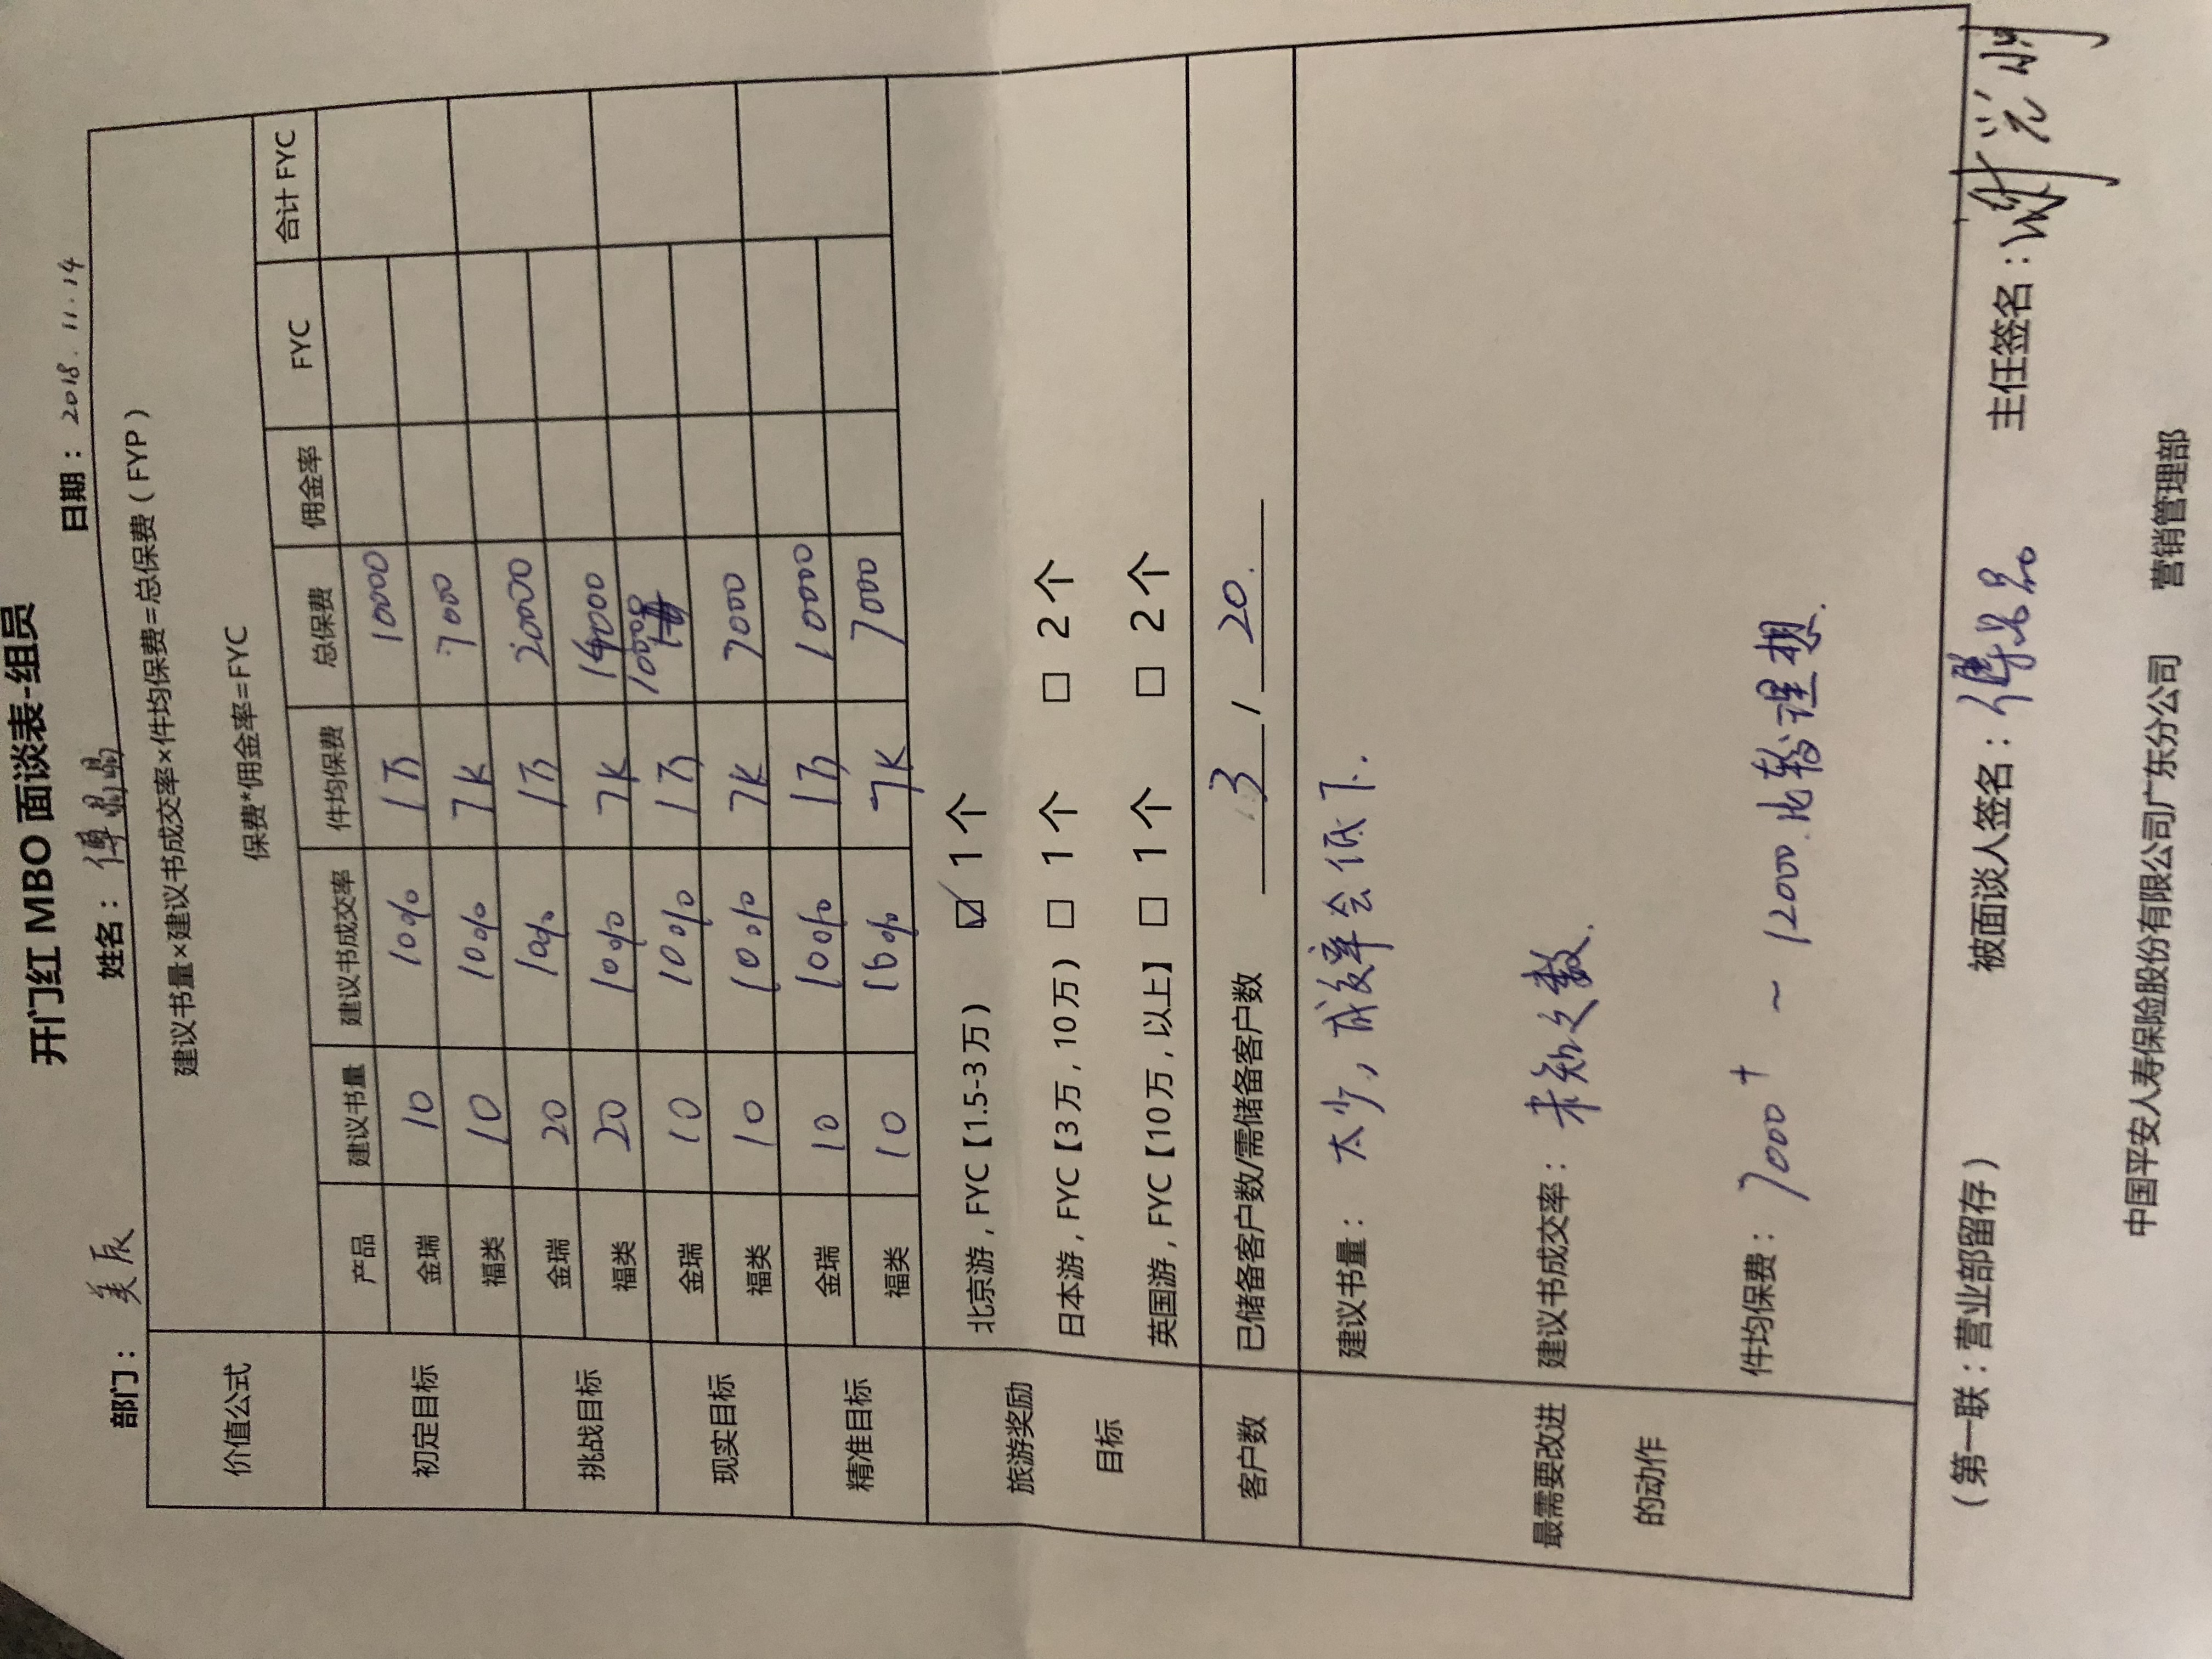 开门红 MBO 面谈表-组员
部门：美辰 姓名：傅晶晶 日期：2018.11.14
价值公式 建议书量×建议书成交率×件均保费=总保费（FYP）
保费*佣金率=FYC
产品 建议书量 建议书成交率 件均保费 总保费 佣金率 FYC 合计 FYC
初定目标 金瑞 10 10% 1万 10000
福类 10 10% 7K 7000
挑战目标 金瑞 20 10% 1万 20000
福类 20 10% 7K 14000
现实目标 金瑞 10 10% 1万 10000
福类 10 10% 7K 7000
精准目标 金瑞 10 10% 1万 10000
福类 10 10% 7K 7000
旅游奖励
目标
北京游，FYC【1.5-3万） ☑ 1个
日本游，FYC【3万，10万） □ 1个 □ 2个
英国游，FYC【10万，以上】 □ 1个 □ 2个
客户数 已储备客户数/需储备客户数 3 / 20.
最需要改进
的动作
建议书量： 太少，成交率会低下.
建议书成交率： 未知之数.
件均保费： 7000+ ~ 12000.比较理想.
（第一联：营业部留存） 被面谈人签名：傅晶晶 主任签名：
中国平安人寿保险股份有限公司广东分公司 营销管理部